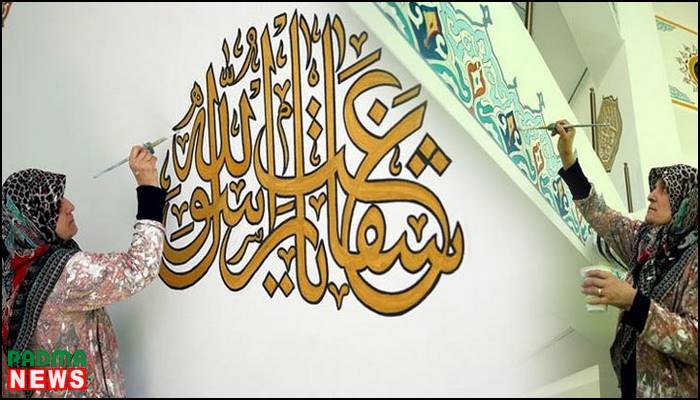 شفاعت يا رسول الله
PADMA
NEWS